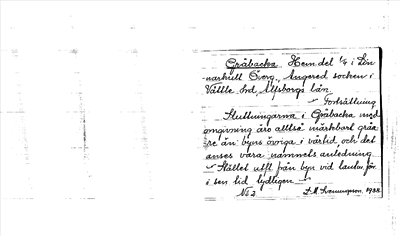 Gråbacka. Hemdel 1/4 i Lin
narhult Överg., Angered socken i
Vättle hd, Älfsborgs län.
Fortsättning
Sluttningarna i Gråbacka med
omgivning äro alltså märkbart grå
re än byns övriga i vårtid, och det
anses vara namnets anledning.
Stället utfl. från byn vid laster för
i sen tid tydligen.
No 2 1922.